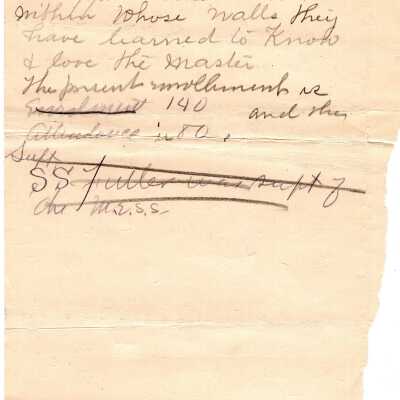 within whose walls they
have learned to Know
& love the Master
The present enrollment is
Enrolment 140 and the
Attendance is 80.
Supt
SS Fuller was supt of
the M.E.S.S.